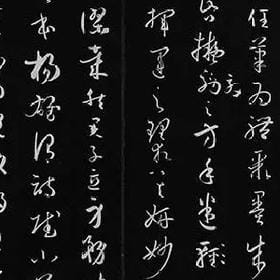 任筆為體聚墨成
擬効之方手迷
揮運之理求其妍妙
謬哉然君子立身務
本楊雄謂詩賦小